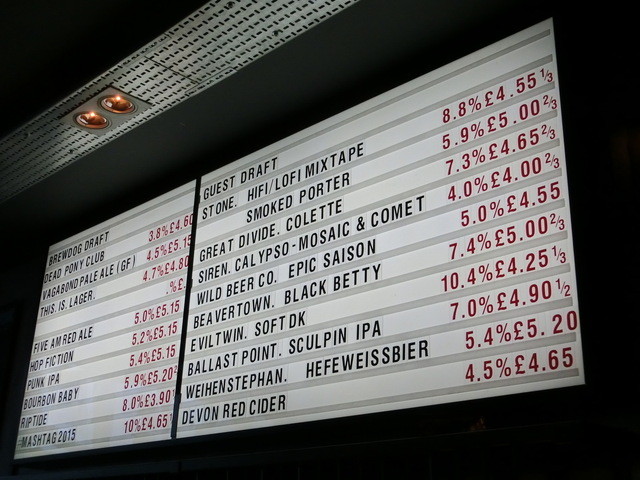 BREWDOG DRAFT
DEAD PONY CLUB 3.8%£4.60
VAGABOND PALE ALE (GF) 4.5%£5.15
THIS. IS. LAGER. 4.7%£4.80
.%£.
FIVE AM RED ALE 5.0%£5.15
HOP FICTION 5.2%£5.15
PUNK IPA 5.4%£5.15
BOURBON BABY 5.9%£5.20
RIPTIDE 8.0%£3.90
MASHTAG 2015 10%£4.65
GUEST DRAFT
STONE. HIFI/LOFI MIXTAPE 8.8%£4.55 1/3
SMOKED PORTER 5.9%£5.00 2/3
GREAT DIVIDE. COLETTE 7.3%£4.65 2/3
SIREN. CALYPSO-MOSAIC & COMET 4.0%£4.00 2/3
WILD BEER CO. EPIC SAISON 5.0%£4.55
BEAVERTOWN. BLACK BETTY 7.4%£5.00 2/3
EVILTWIN. SOFT DK 10.4%£4.25 1/3
BALLAST POINT. SCULPIN IPA 7.0%£4.90 1/2
WEIHENSTEPHAN. HEFEWEISSBIER 5.4%£5.20
DEVON RED CIDER 4.5%£4.65